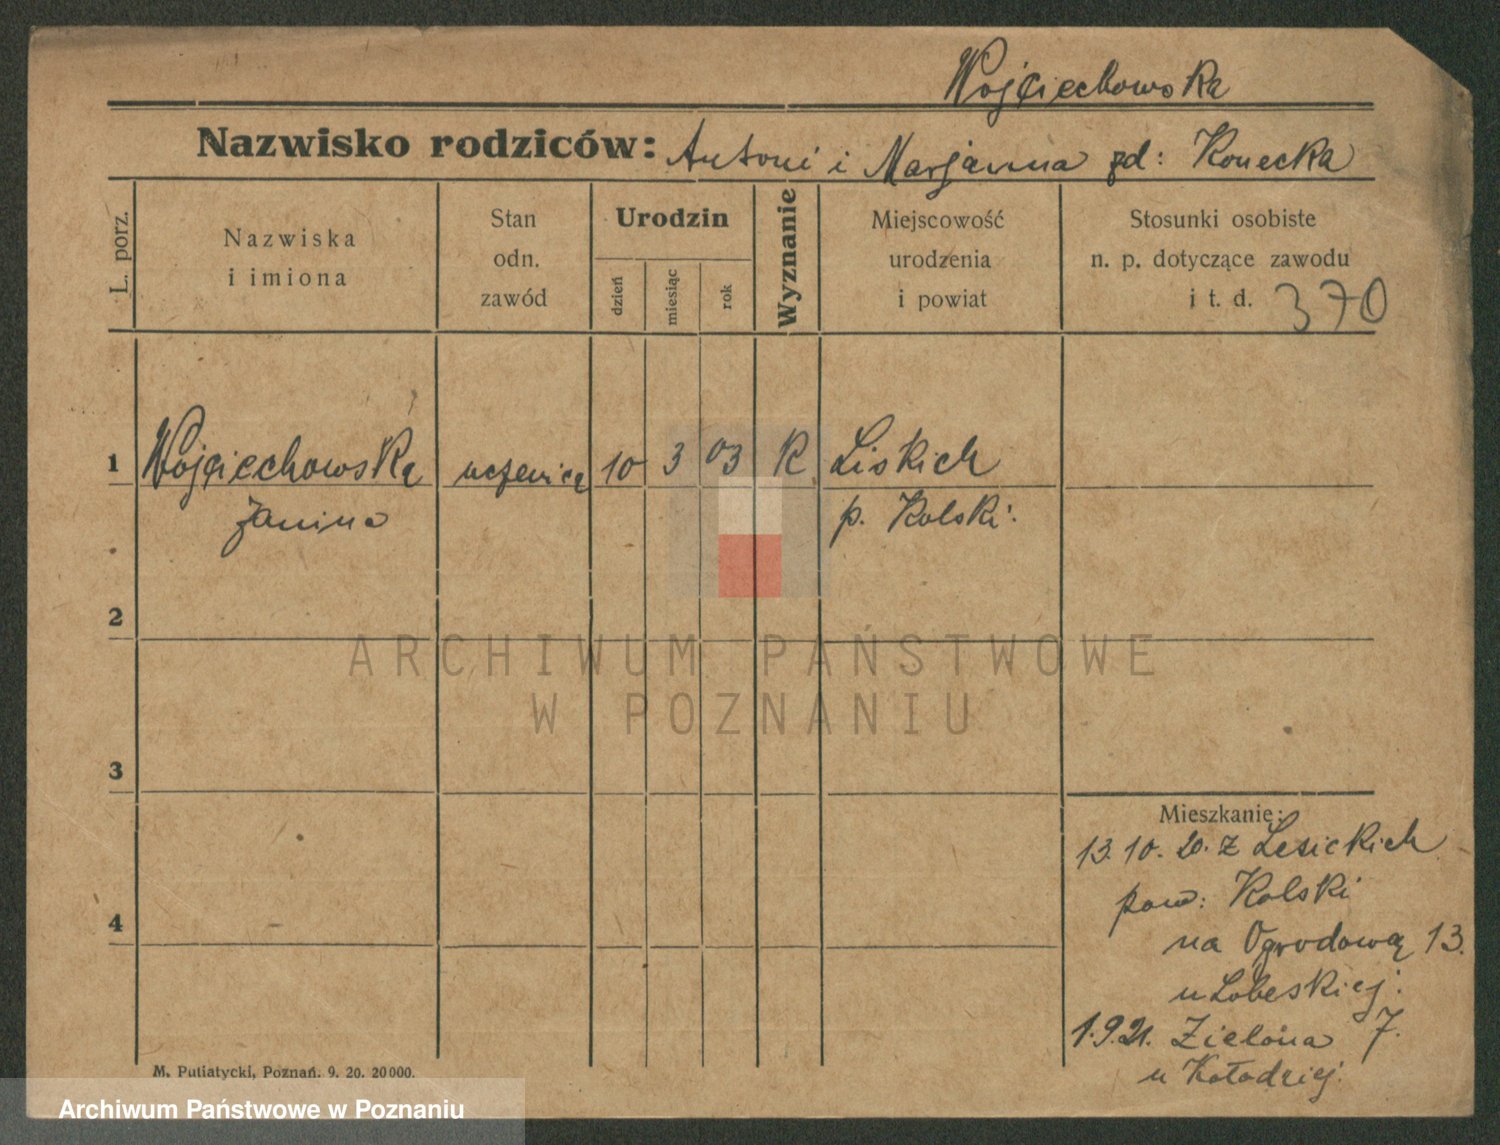 Wojciechowska
Nazwisko rodziców: Antoni i Marjanna zd: Konecka
L. porz.
Nazwiska
i imiona
Stan
odn.
zawód
Urodzin
dzień
miesiąc
rok
Wyznanie
Miejscowość
urodzenia
i powiat
Stosunki osobiste
n. p. dotyczące zawodu
i t. d. 370
1 Wojciechowska uczenica 10 3 03 K Liskich
Janina p. Kolski.
2
3
4
Mieszkanie:
13.10.20. z Lesickich
pow: Kolski
na Ogrodową 13.
u Lobeskiej.
1.9.21. Zielona 7.
u Kołodziej.
M. Putiatycki, Poznań. 9. 20. 20000.
ARCHIWUM PAŃSTWOWE
W POZNANIU
Archiwum Państwowe w Poznaniu